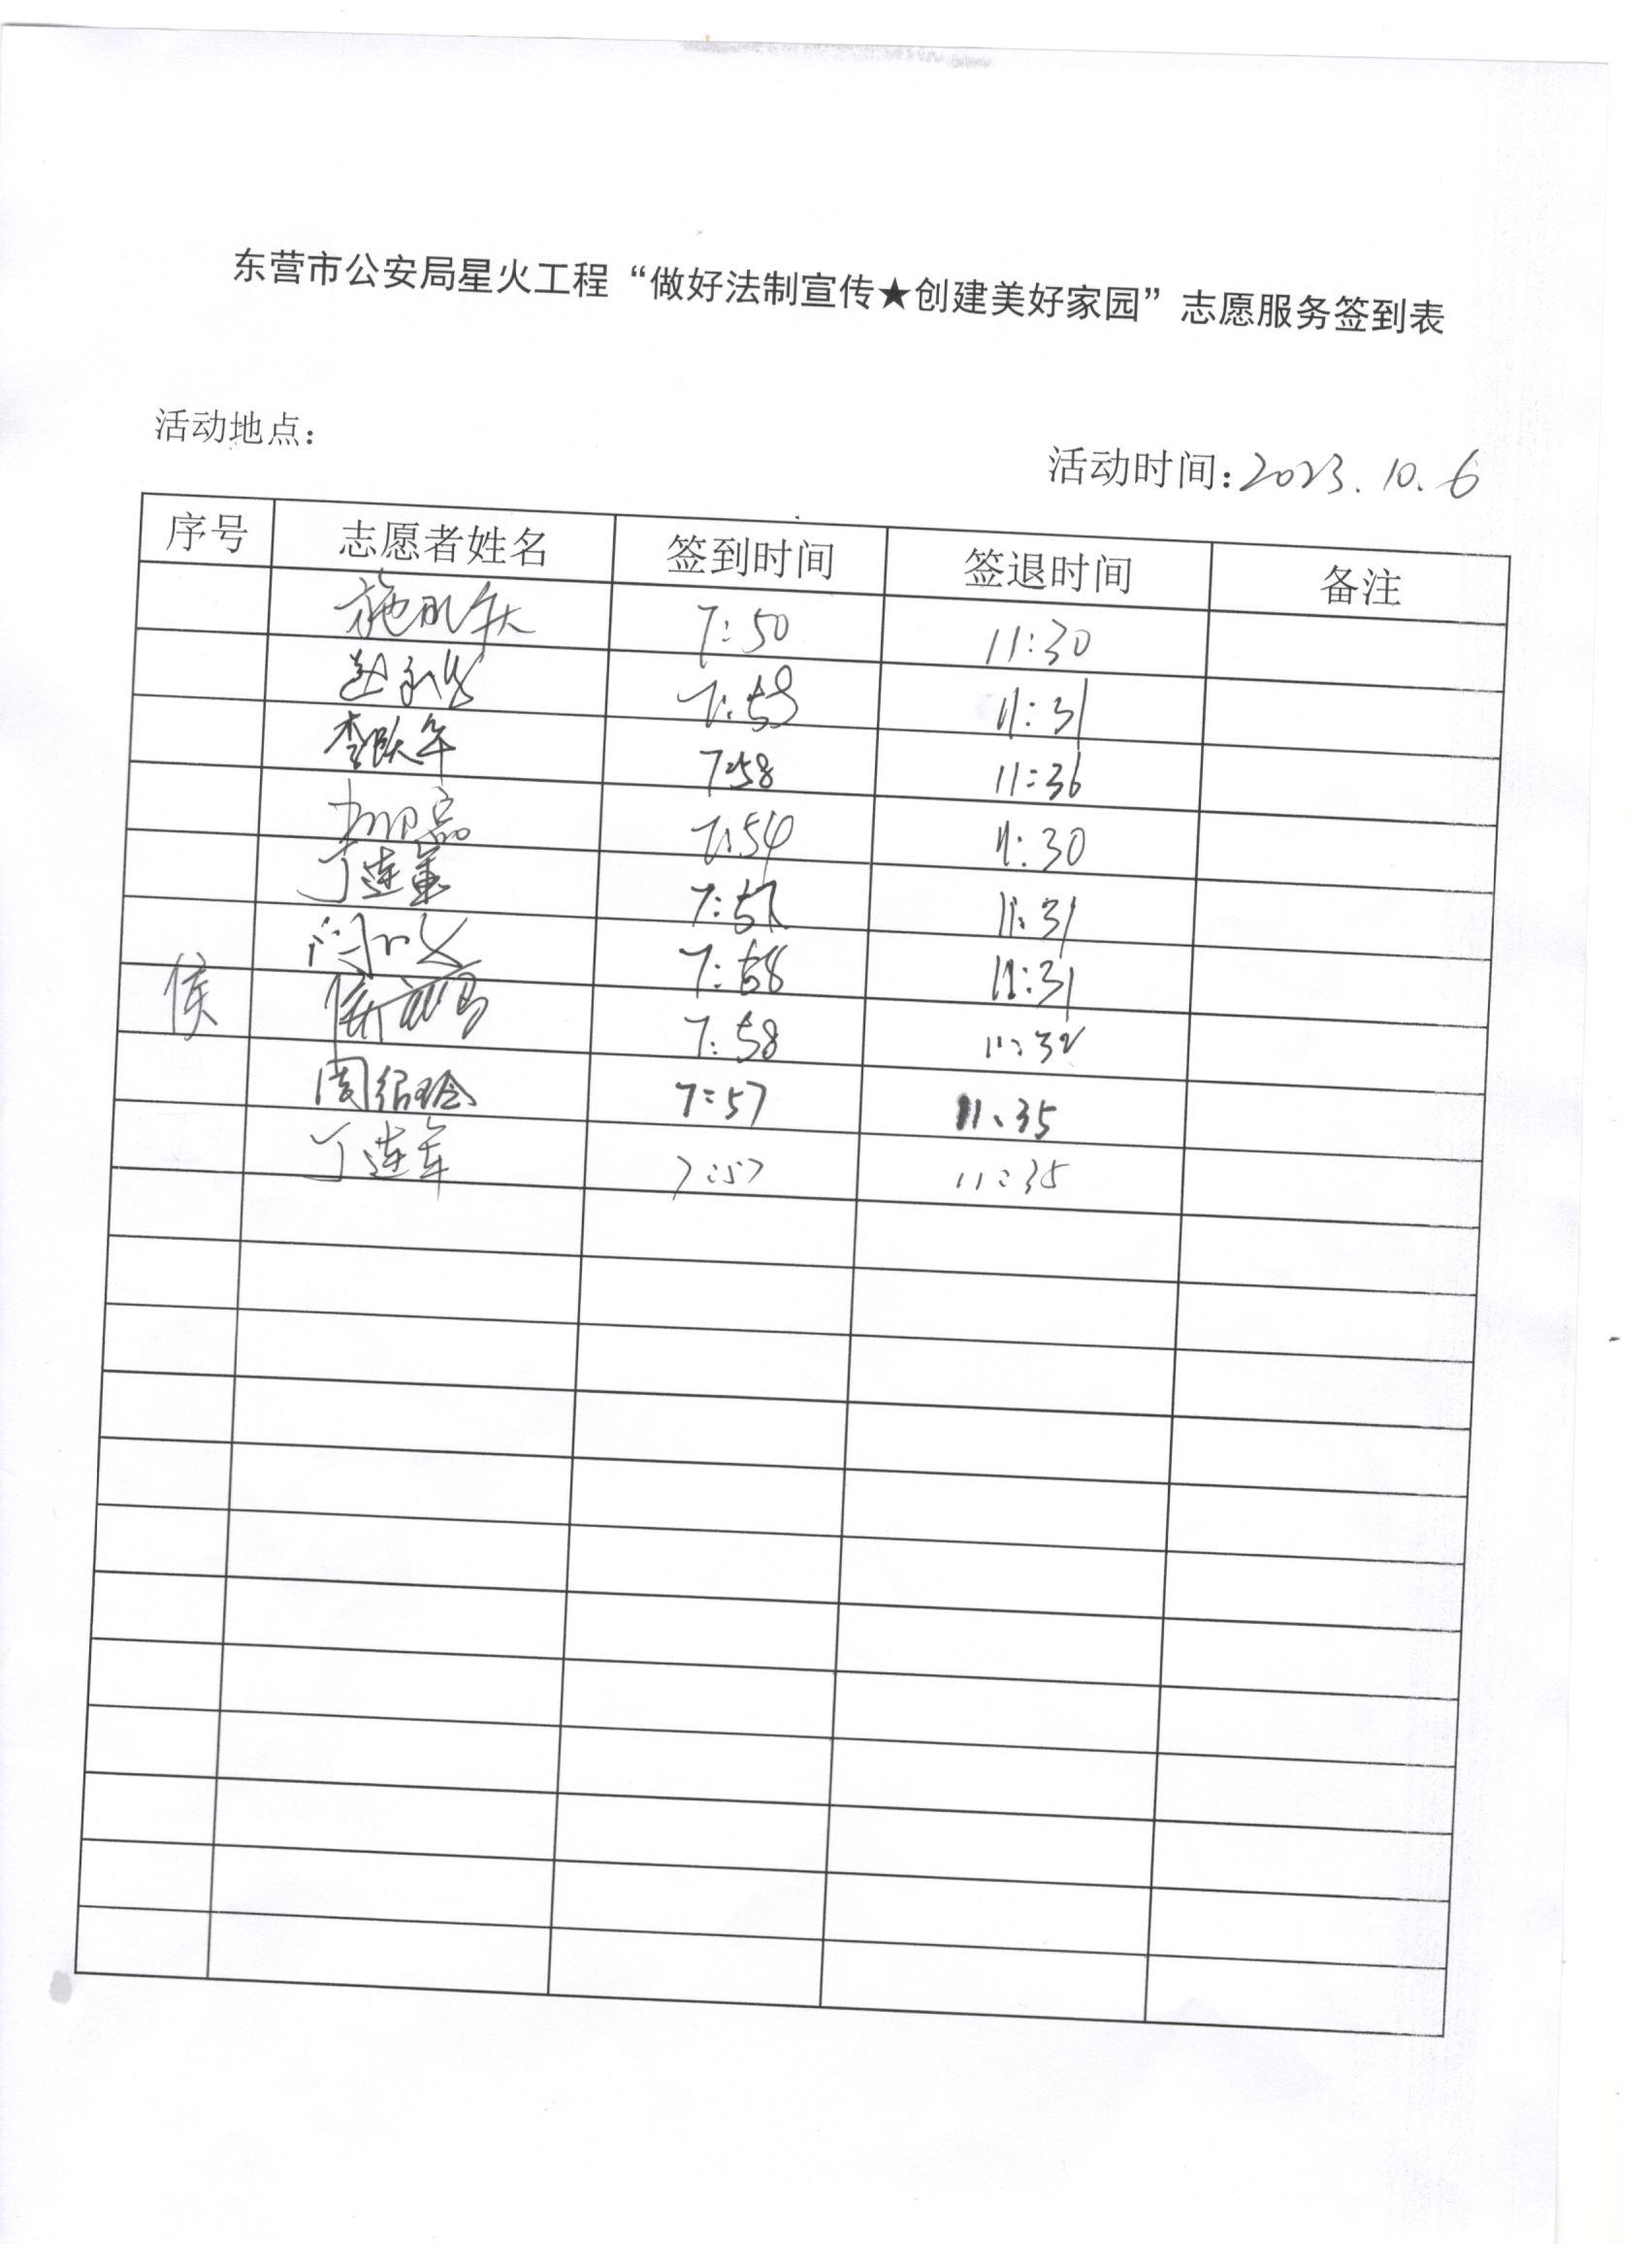 东营市公安局星火工程“做好法制宣传★创建美好家园”志愿服务签到表
活动地点：
活动时间：2023.10.6
序号 志愿者姓名 签到时间 签退时间 备注
施 7:50 11:30
赵 7:58 11:31
李跃年 7:58 11:36
7:54 11:30
丁连军 7:57 11:31
闫 7:58 11:31
侯 侯 7:58 11:32
周绍玲 7:57 11:35
丁连军 7:57 11:35